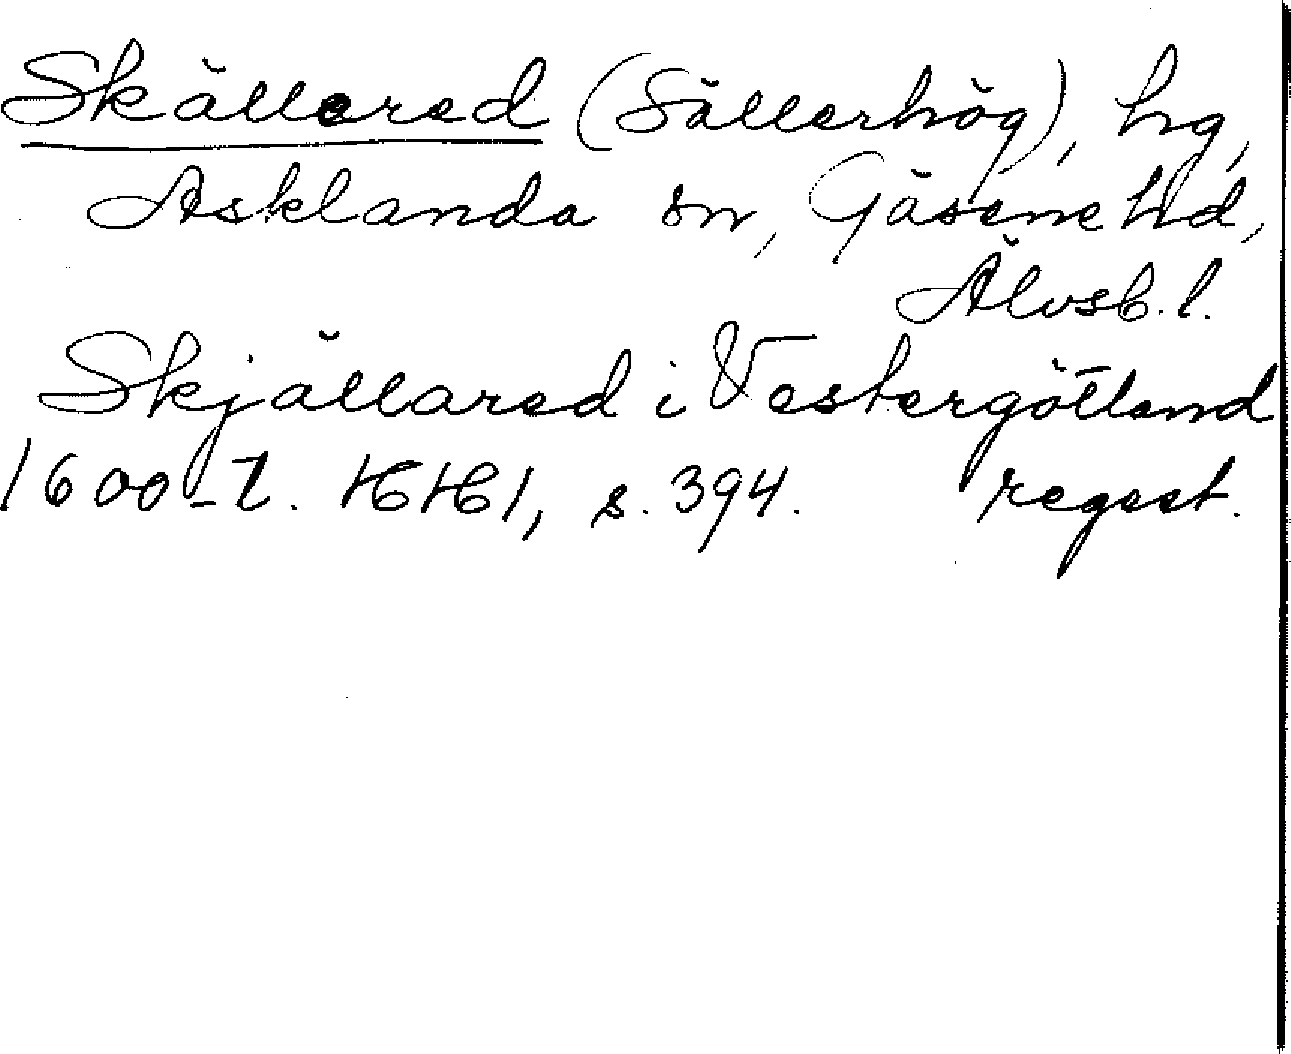 Skällered (Sällerhög), hg,
Asklanda sn, Gäsene hd,
Älvsb. l.
Skjällared i Vestergötland
1600-t. HH 1, s. 394. regest.